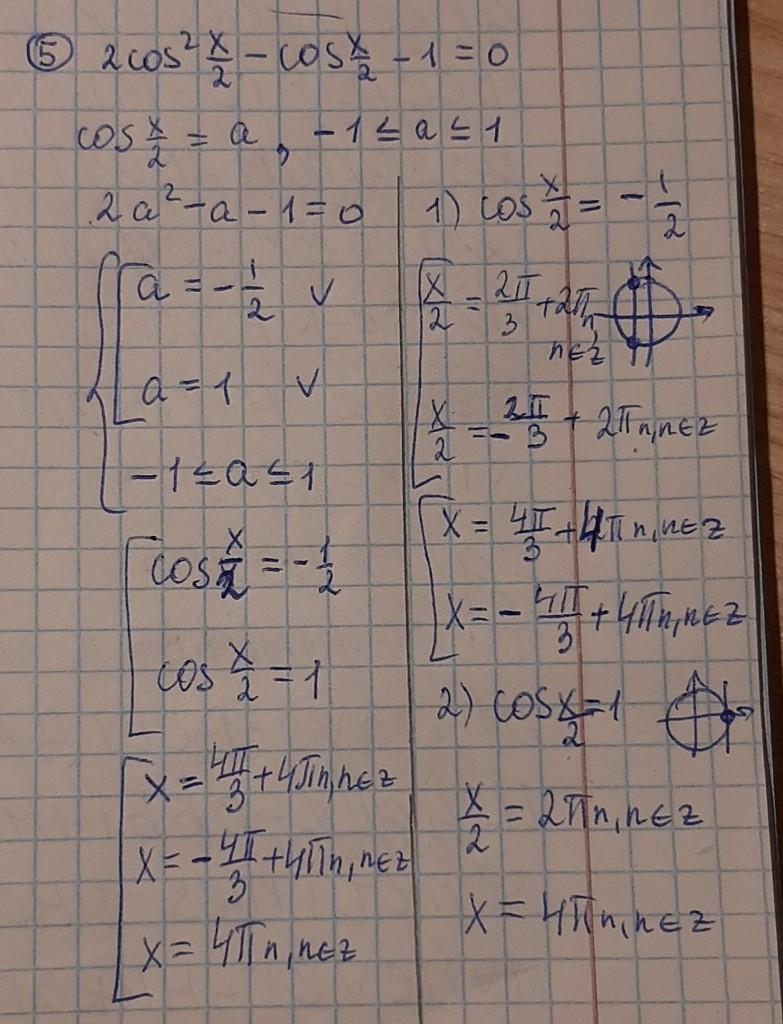 5 2cos² x/2 - cos x/2 - 1 = 0
cos x/2 = a, -1 ≤ a ≤ 1
2a² - a - 1 = 0
a = -1/2 ∨
a = 1 ∨
-1 ≤ a ≤ 1
cos x/2 = -1/2
cos x/2 = 1
x = 4π/3 + 4πn, n∈z
x = -4π/3 + 4πn, n∈z
x = 4πn, n∈z
1) cos x/2 = -1/2
x/2 = 2π/3 + 2πn,
n∈z
x/2 = -2π/3 + 2πn, n∈z
x = 4π/3 + 4πn, n∈z
x = -4π/3 + 4πn, n∈z
2) cos x/2 = 1
x/2 = 2πn, n∈z
x = 4πn, n∈z